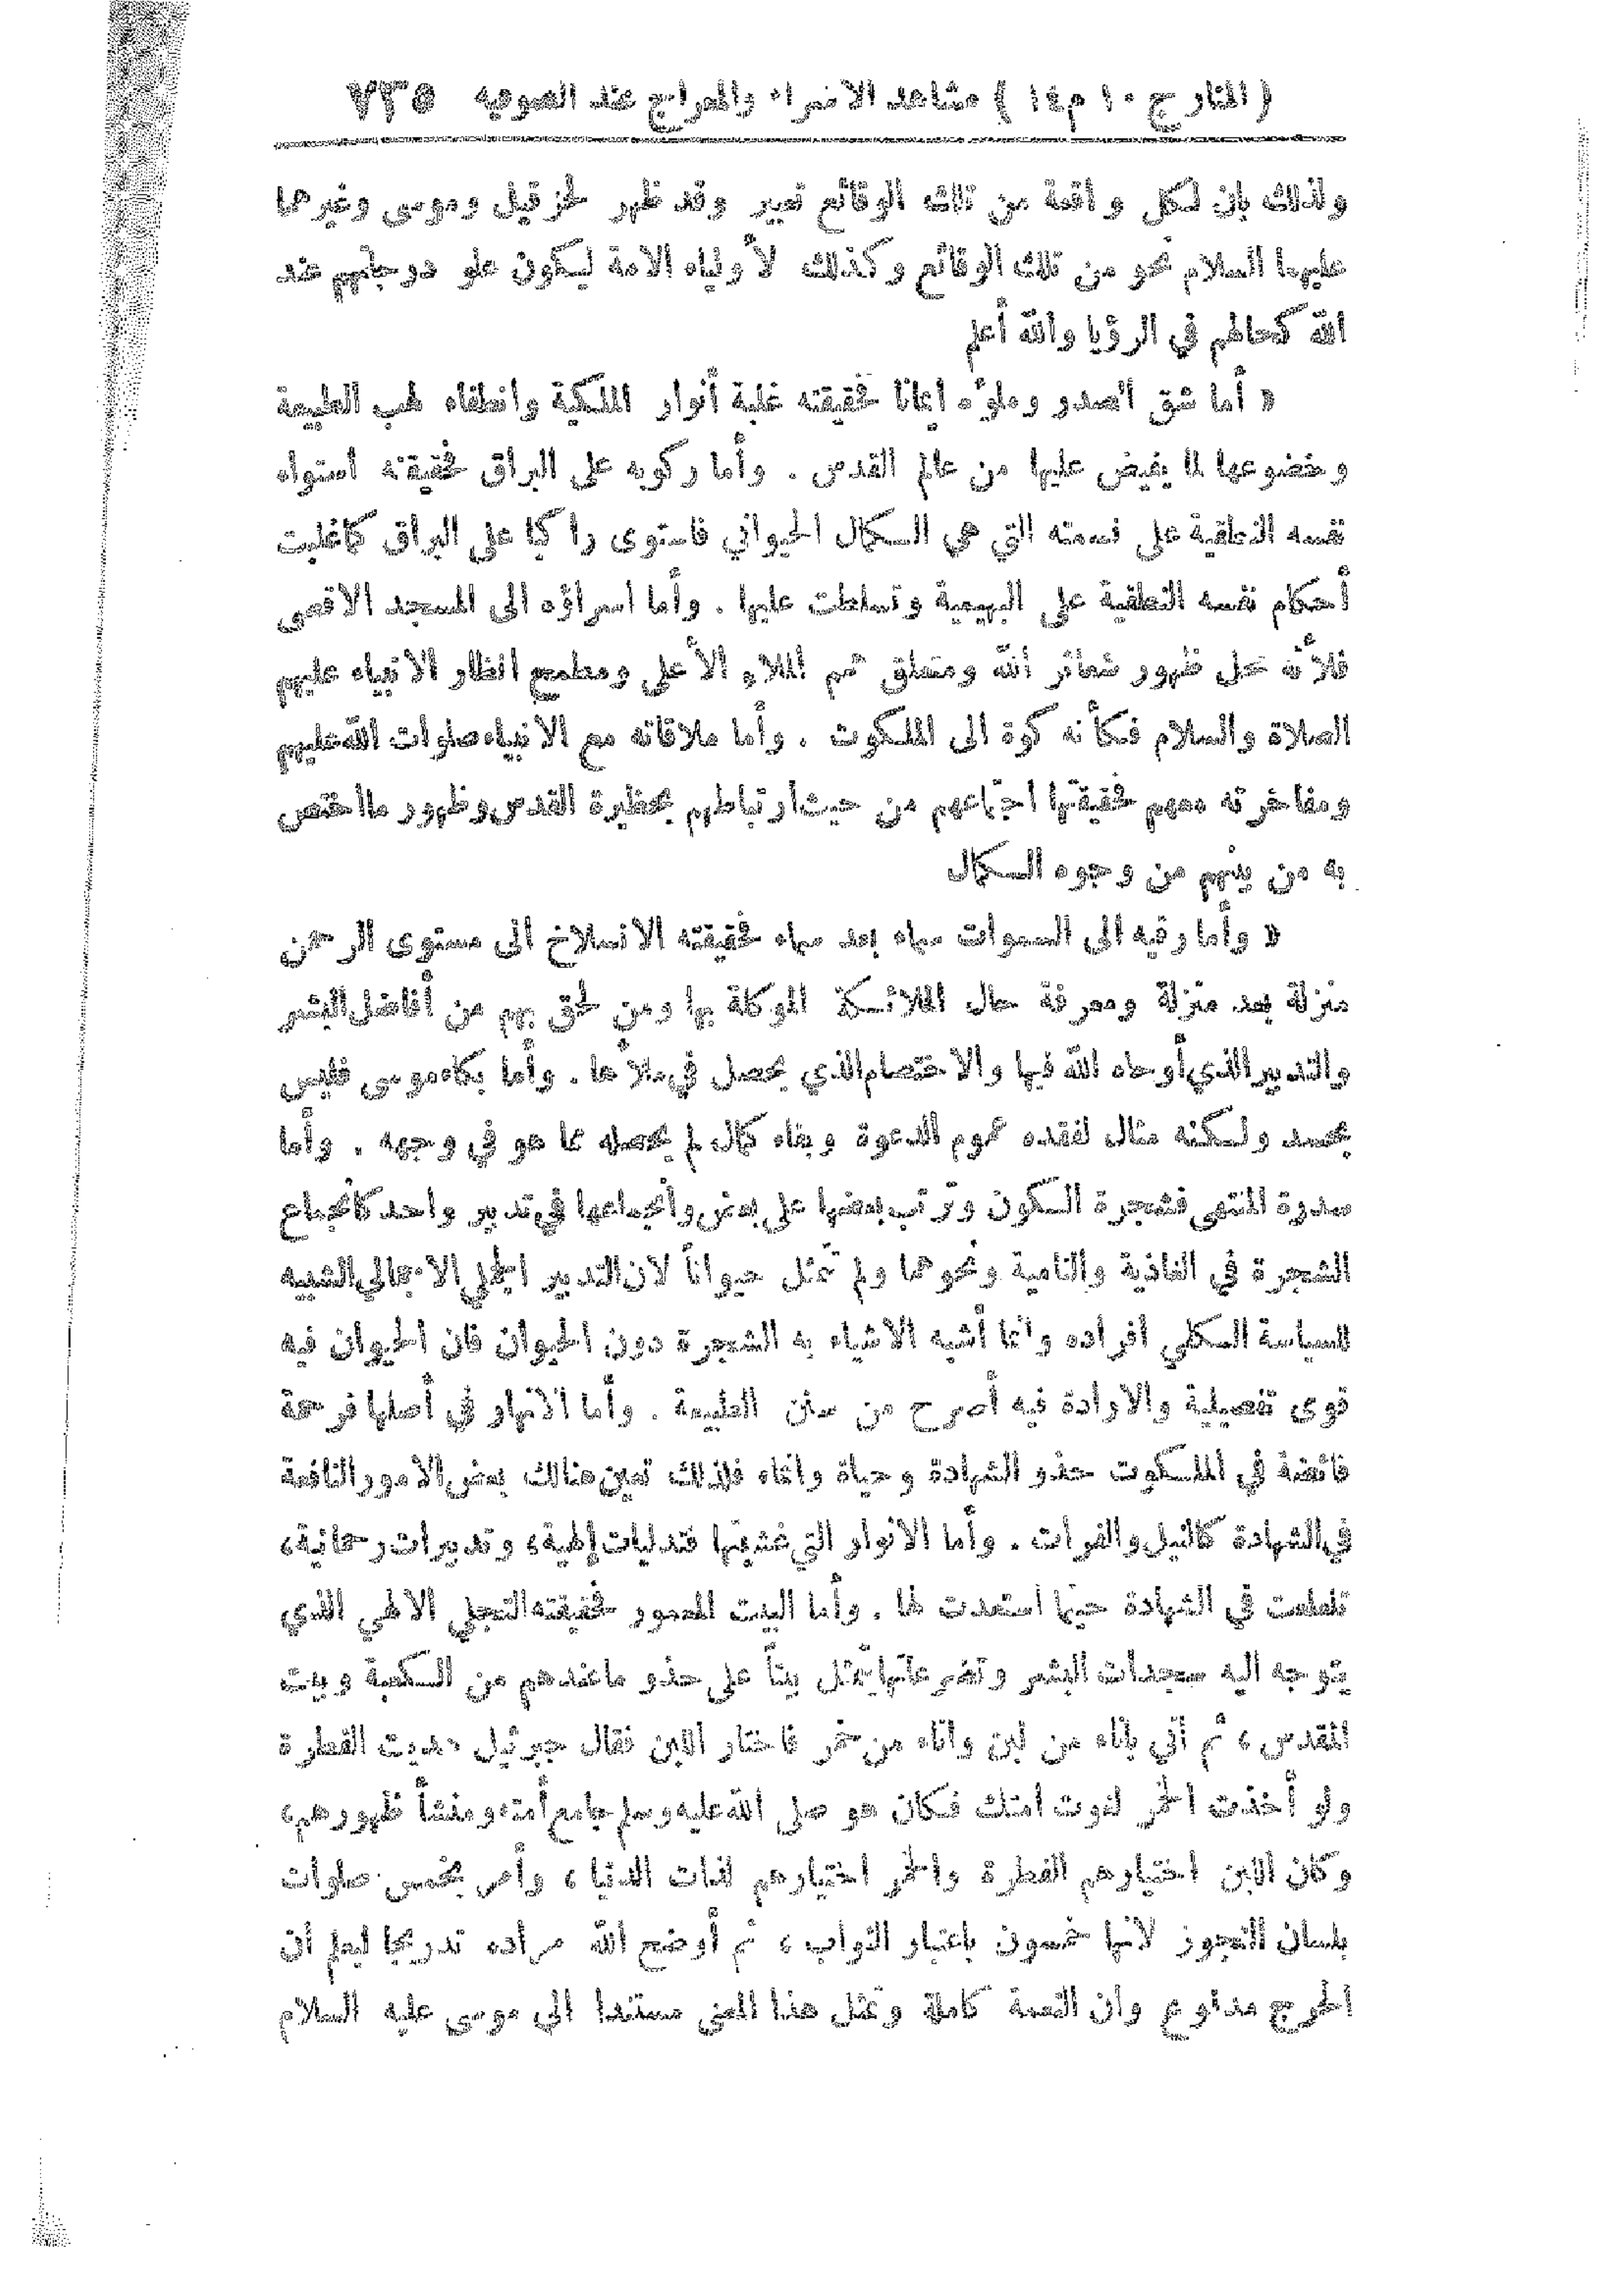 ( المنار ج ١٠ م ١٤ ) مشاهد الاسراء والمعراج عند الصوفيه ٧٣٥
ولذلك بان لكل واقعة من تلك الوقائع تعبير وقد ظهر لحزقيل وموسى وغيرهما
عليهما السلام نحو من تلك الوقائع وكذلك لأولياء الامة ليكون علو درجاتهم عند
الله كحالهم في الرؤيا والله أعلم
« أما شق الصدر وملؤه ايمانا فحقيقته غلبة أنوار الملكية وانطفاء لهب الطبيعة
وخضوعها لما يفيض عليها من عالم القدس . وأما ركوبه على البراق فحقيقته استواء
نفسه النطقية على نسمته التي هي الكمال الحيواني فاستوى راكبا على البراق كما غلبت
أحكام نفسه النطقية على البهيمية وتسلطت عليها . وأما اسراؤه الى المسجد الاقصى
فلأنه محل ظهور شعائر الله ومتعلق همم الملاء الأعلى ومطمح انظار الانبياء عليهم
الصلاة والسلام فكأنه كوة الى الملكوت . وأما ملاقاته مع الانبياء صلوات الله عليهم
ومفاخرته معهم فحقيقتها اجتماعهم من حيث ارتباطهم بحظيرة القدس وظهور ما اختص
به من بينهم من وجوه الكمال
« وأما رقيه الى السموات سماء بعد سماء فحقيقته الانسلاخ الى مستوى الرحمن
منزلة بعد منزلة ومعرفة حال الملائكة الموكلة بها ومن لحق بهم من أفاضل البشر
والتدبير الذي أوحاه الله فيها والاختصام الذي يحصل في ملأها . وأما بكاء موسى فليس
بحسد ولكنه مثال لفقده عموم الدعوة وبقاء كمال لم يحصله مما هو في وجهه . وأما
سدرة المنتهى فشجرة الكون وترتب بعضها على بعض وانجماعها في تدبير واحد كانجماع
الشجرة في الغاذية والنامية ونحوهما ولم تتمثل حيواناً لان التدبير الجملي الاجمالي الشبيه
للسياسة الكلي افراده وانما أشبه الاشياء به الشجرة دون الحيوان فان الحيوان فيه
قوى تفصيلية والارادة فيه أصرح من سنن الطبيعة . وأما الانهار في أصلها فرحمة
فائضة في الملكوت حذو الشهادة وحياة وانماء فلذلك تعين هنالك بعض الامور النافعة
في الشهادة كالنيل والفرات . وأما الانوار التي غشيتها فتدليات إلهية، وتدبيرات رحمانية،
تلعلعت في الشهادة حيثما استعدت لها . وأما البيت المعمور فحقيقته التجلي الالهي الذي
يتوجه اليه سجدات البشر وتضرعاتها يتمثل بيتاً على حذو ما عندهم من الكعبة وبيت
المقدس، ثم أتي باناء من لبن واناء من خمر فاختار اللبن فقال جبرئيل هديت الفطرة
ولو أخذت الخمر لغوت امتك فكان هو صلى الله عليه وسلم جامع أمته ومنشأ ظهورهم،
وكان اللبن اختيارهم الفطرة والخمر اختيارهم لذات الدنيا، وأمر بخمس صلوات
بلسان التجوز لانها خمسون باعتبار الثواب، ثم أوضح الله مراده تدريجا ليعلم أن
الحرج مدفوع وان النعمة كاملة وتمثل هذا المعنى مستندا الى موسى عليه السلام